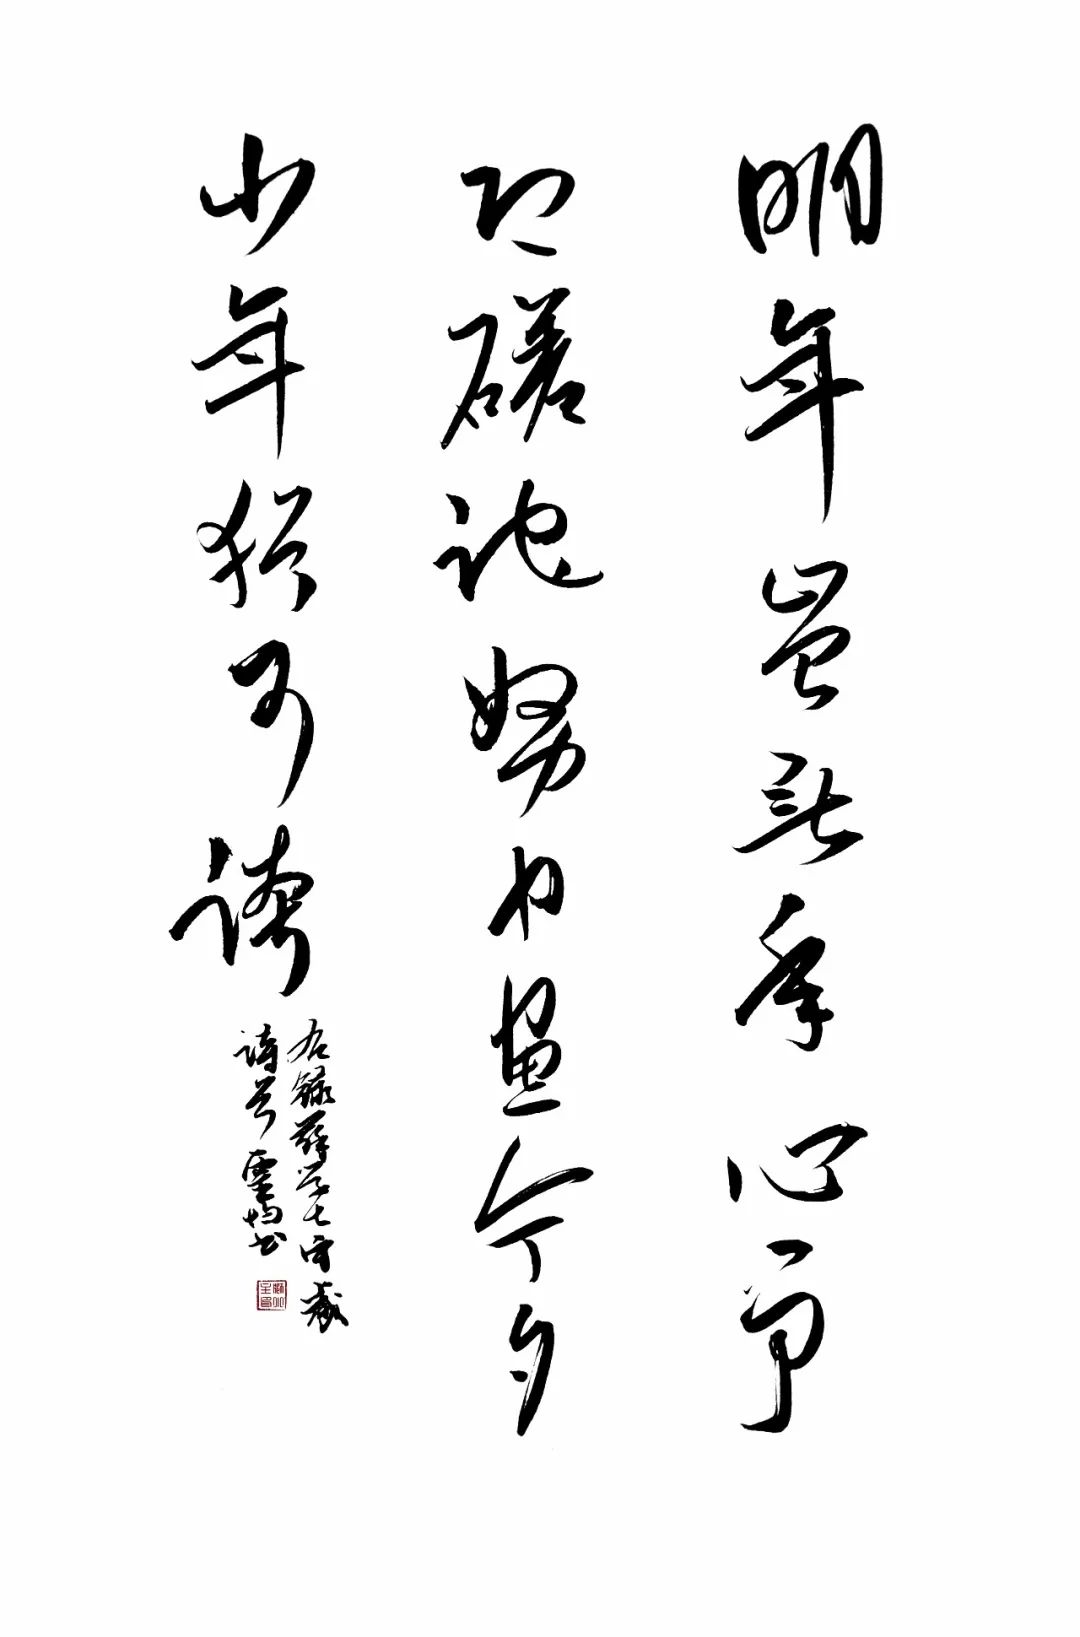 明年豈無年心事
恐蹉跎努力盡今夕
少年猶可誇
右錄蘇學士守歲
詩